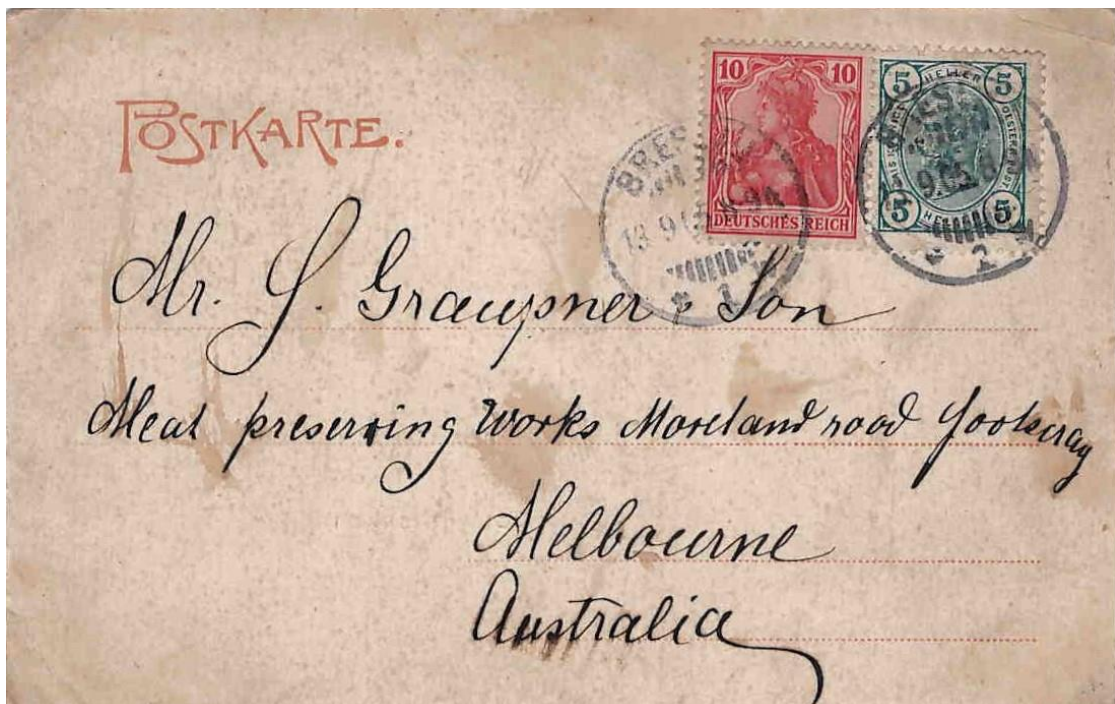 POSTKARTE.
10 10
DEUTSCHES REICH
5 HELLER 5
5 5
BRES
13 9
1
BRES
9.05.8
1
Mr. S. Graupner & Son
Meat preserving Works Moreland road footscray
Melbourne
Australia